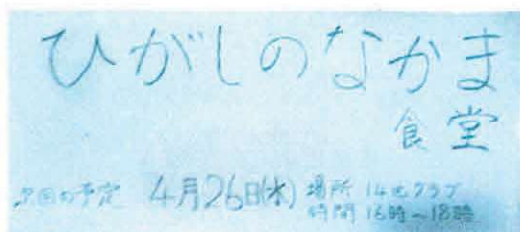 ひがしのなかま
食堂
次回の予定 4月26日(水) 場所 14区クラブ
時間 16時~18時